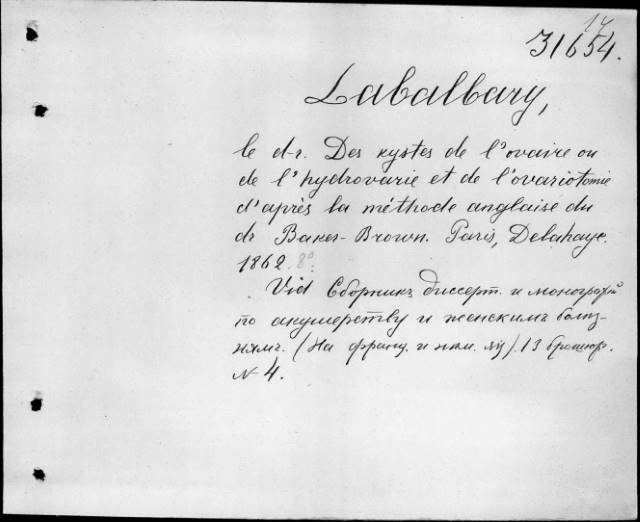 17
31654.
Labalbary,
le d-r. Des kystes de l'ovaire ou
de l'hydrovarie et de l'ovariotomie
d'après la méthode anglaise du
dr Baker-Brown. Paris, Delahaye.
1862. 8°.
Vid Сборникъ диссерт. и монографій
по акушерству и женскимъ болѣз-
нямъ. (На франц. и нѣм. яз). 13 брошюр.
N 4.